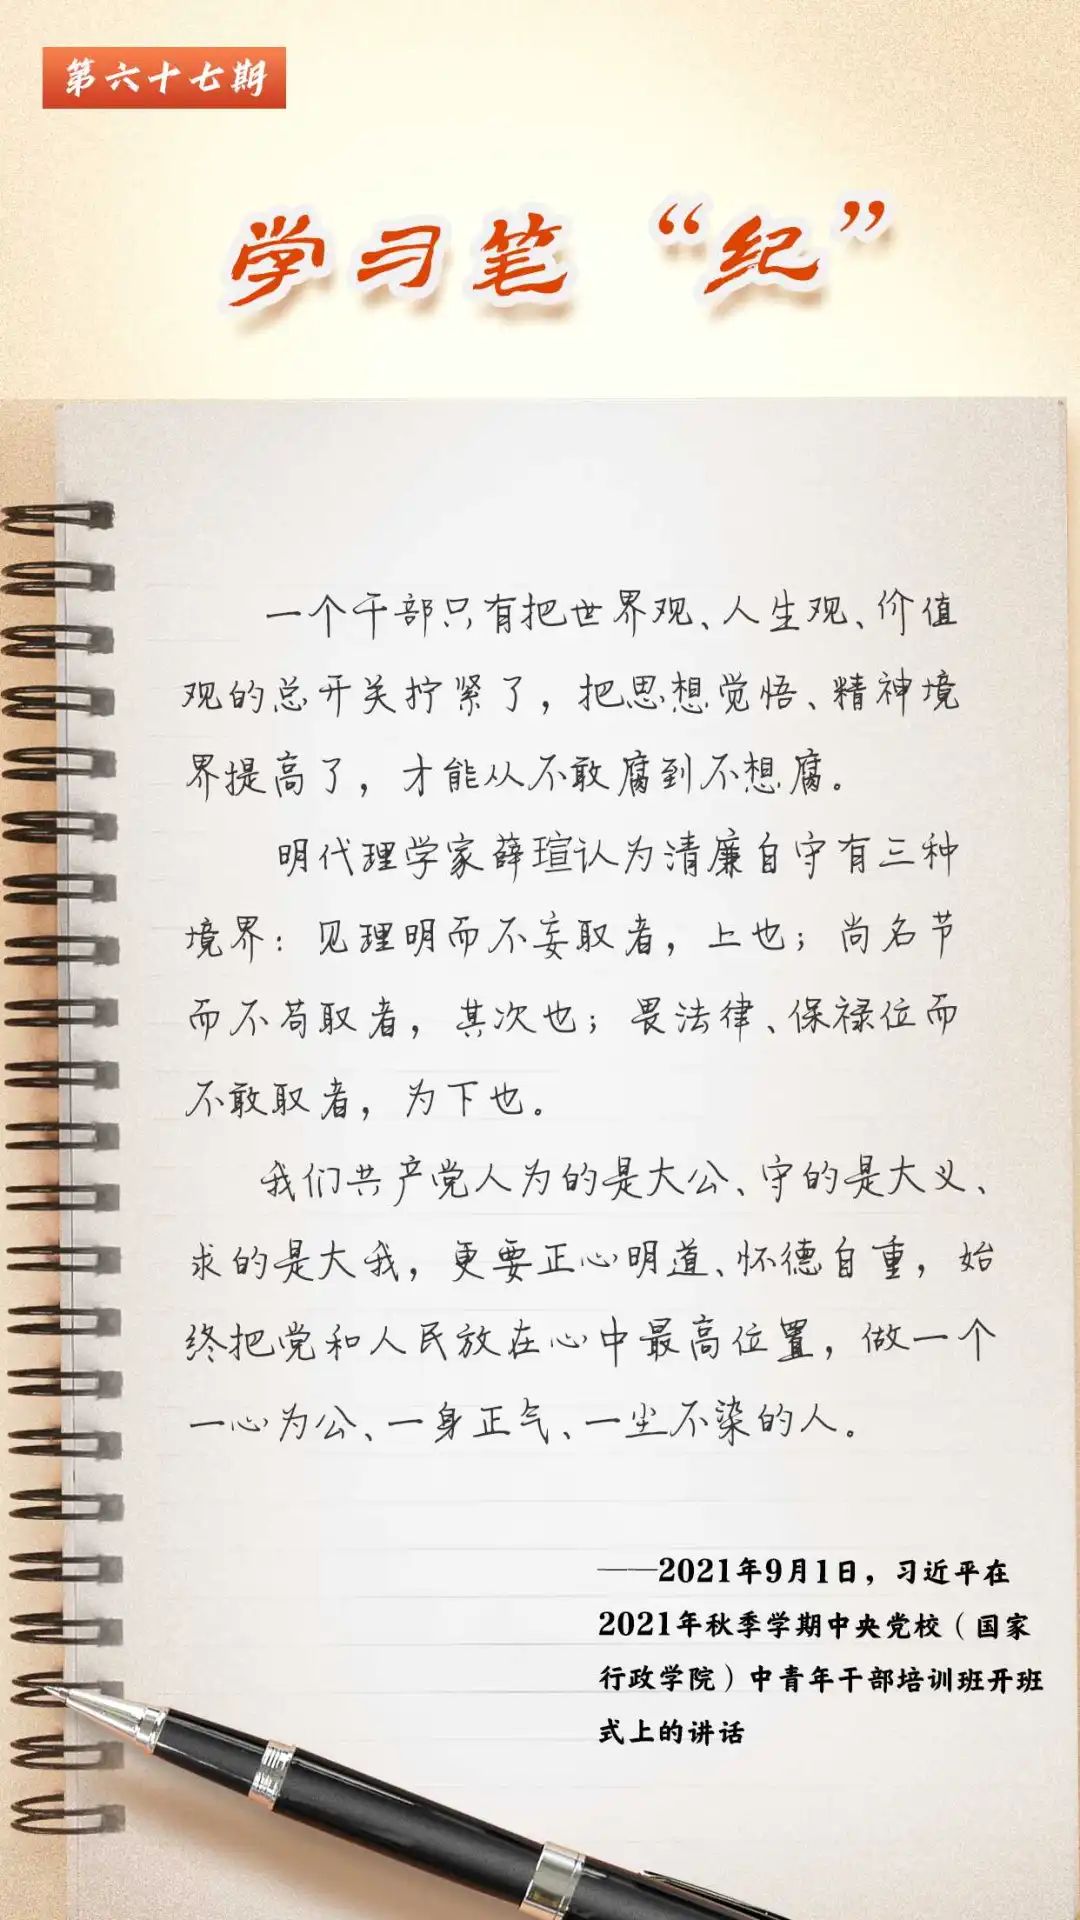 第六十七期
学习笔“纪”
一个干部只有把世界观、人生观、价值
观的总开关拧紧了，把思想觉悟、精神境
界提高了，才能从不敢腐到不想腐。
明代理学家薛瑄认为清廉自守有三种
境界：见理明而不妄取者，上也；尚名节
而不苟取者，其次也；畏法律、保禄位而
不敢取者，为下也。
我们共产党人为的是大公、守的是大义、
求的是大我，更要正心明道、怀德自重，始
终把党和人民放在心中最高位置，做一个
一心为公、一身正气、一尘不染的人。
——2021年9月1日，习近平在
2021年秋季学期中央党校（国家
行政学院）中青年干部培训班开班
式上的讲话